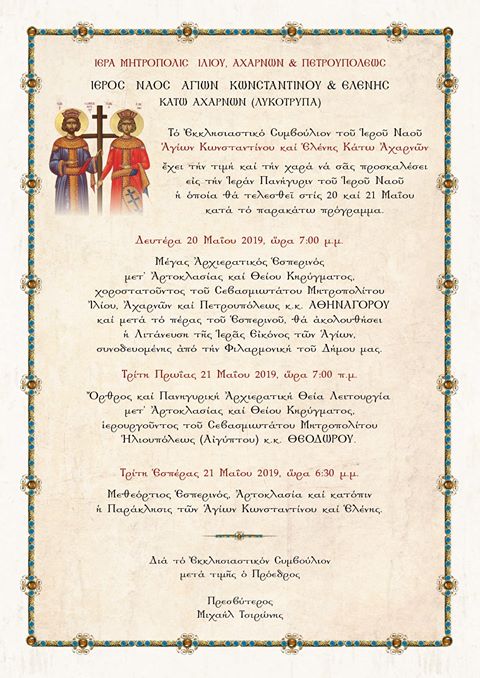 ΙΕΡΑ ΜΗΤΡΟΠΟΛΙΣ ΙΛΙΟΥ, ΑΧΑΡΝΩΝ & ΠΕΤΡΟΥΠΟΛΕΩΣ
ΙΕΡΟΣ ΝΑΟΣ ΑΓΙΩΝ ΚΩΝΣΤΑΝΤΙΝΟΥ & ΕΛΕΝΗΣ
ΚΑΤΩ ΑΧΑΡΝΩΝ (ΛΥΚΟΤΡΥΠΑ)
Τό Ἐκκλησιαστικό Συμβούλιον τοῦ Ἱεροῦ Ναοῦ
Ἁγίων Κωνσταντίνου καί Ἑλένης Κάτω Ἀχαρνῶν
ἔχει τήν τιμή καί τήν χαρά νά σᾶς προσκαλέσει
εἰς τήν Ἱεράν Πανήγυριν τοῦ Ἱεροῦ Ναοῦ
ἡ ὁποία θά τελεσθεῖ στίς 20 καί 21 Μαΐου
κατά τό παρακάτω πρόγραμμα.
Δευτέρα 20 Μαΐου 2019, ὥρα 7:00 μ.μ.
Μέγας Ἀρχιερατικός Ἑσπερινός
μετ' Ἀρτοκλασίας καί Θείου Κηρύγματος,
χοροστατοῦντος τοῦ Σεβασμιωτάτου Μητροπολίτου
Ἰλίου, Ἀχαρνῶν καί Πετρουπόλεως κ.κ. ΑΘΗΝΑΓΟΡΟΥ
καί μετά τό πέρας τοῦ Ἑσπερινοῦ, θά ἀκολουθήσει
ἡ Λιτάνευση τῆς Ἱερᾶς Εἰκόνος τῶν Ἁγίων,
συνοδευομένης ἀπό τήν Φιλαρμονική τοῦ Δήμου μας.
Τρίτη Πρωΐας 21 Μαΐου 2019, ὥρα 7:00 π.μ.
Ὄρθρος καί Πανηγυρική Ἀρχιερατική Θεία Λειτουργία
μετ' Ἀρτοκλασίας καί Θείου Κηρύγματος,
ἱερουργοῦντος τοῦ Σεβασμιωτάτου Μητροπολίτου
Ἡλιουπόλεως (Αἰγύπτου) κ.κ. ΘΕΟΔΩΡΟΥ.
Τρίτη Ἑσπέρας 21 Μαΐου 2019, ὥρα 6:30 μ.μ.
Μεθεόρτιος Ἑσπερινός, Ἀρτοκλασία καί κατόπιν
ἡ Παράκλησις τῶν Ἁγίων Κωνσταντίνου καί Ἑλένης.
Διά τό Ἐκκλησιαστικόν Συμβούλιον
μετά τιμῆς ὁ Πρόεδρος
Πρεσβύτερος
Μιχαήλ Τσιρώνης